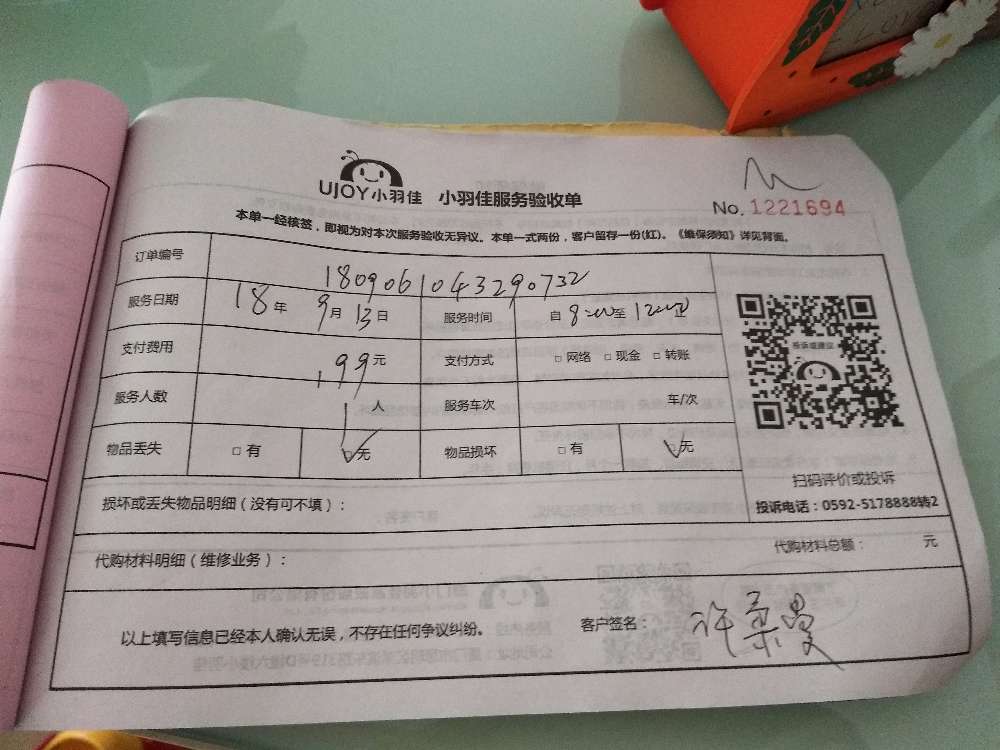 UJOY小羽佳 小羽佳服务验收单
No. 1221694
本单一经核签，即视为对本次服务验收无异议。本单一式两份，客户留存一份(红)。《维保须知》详见背面。
订单编号 1809061043290732
服务日期 18年 9月 13日 服务时间 自 8:00至 12:00止
支付费用 199元 支付方式 □ 网络 □ 现金 □ 转账
服务人数 1人 服务车次 车/次
物品丢失 □ 有 ☑无 物品损坏 □ 有 ☑无
投诉或建议
扫码评价或投诉
投诉电话：0592-5178888转2
损坏或丢失物品明细（没有可不填）：
代购材料明细（维修业务）： 代购材料总额： 元
以上填写信息已经本人确认无误，不存在任何争议纠纷。 客户签名： 许柔曼